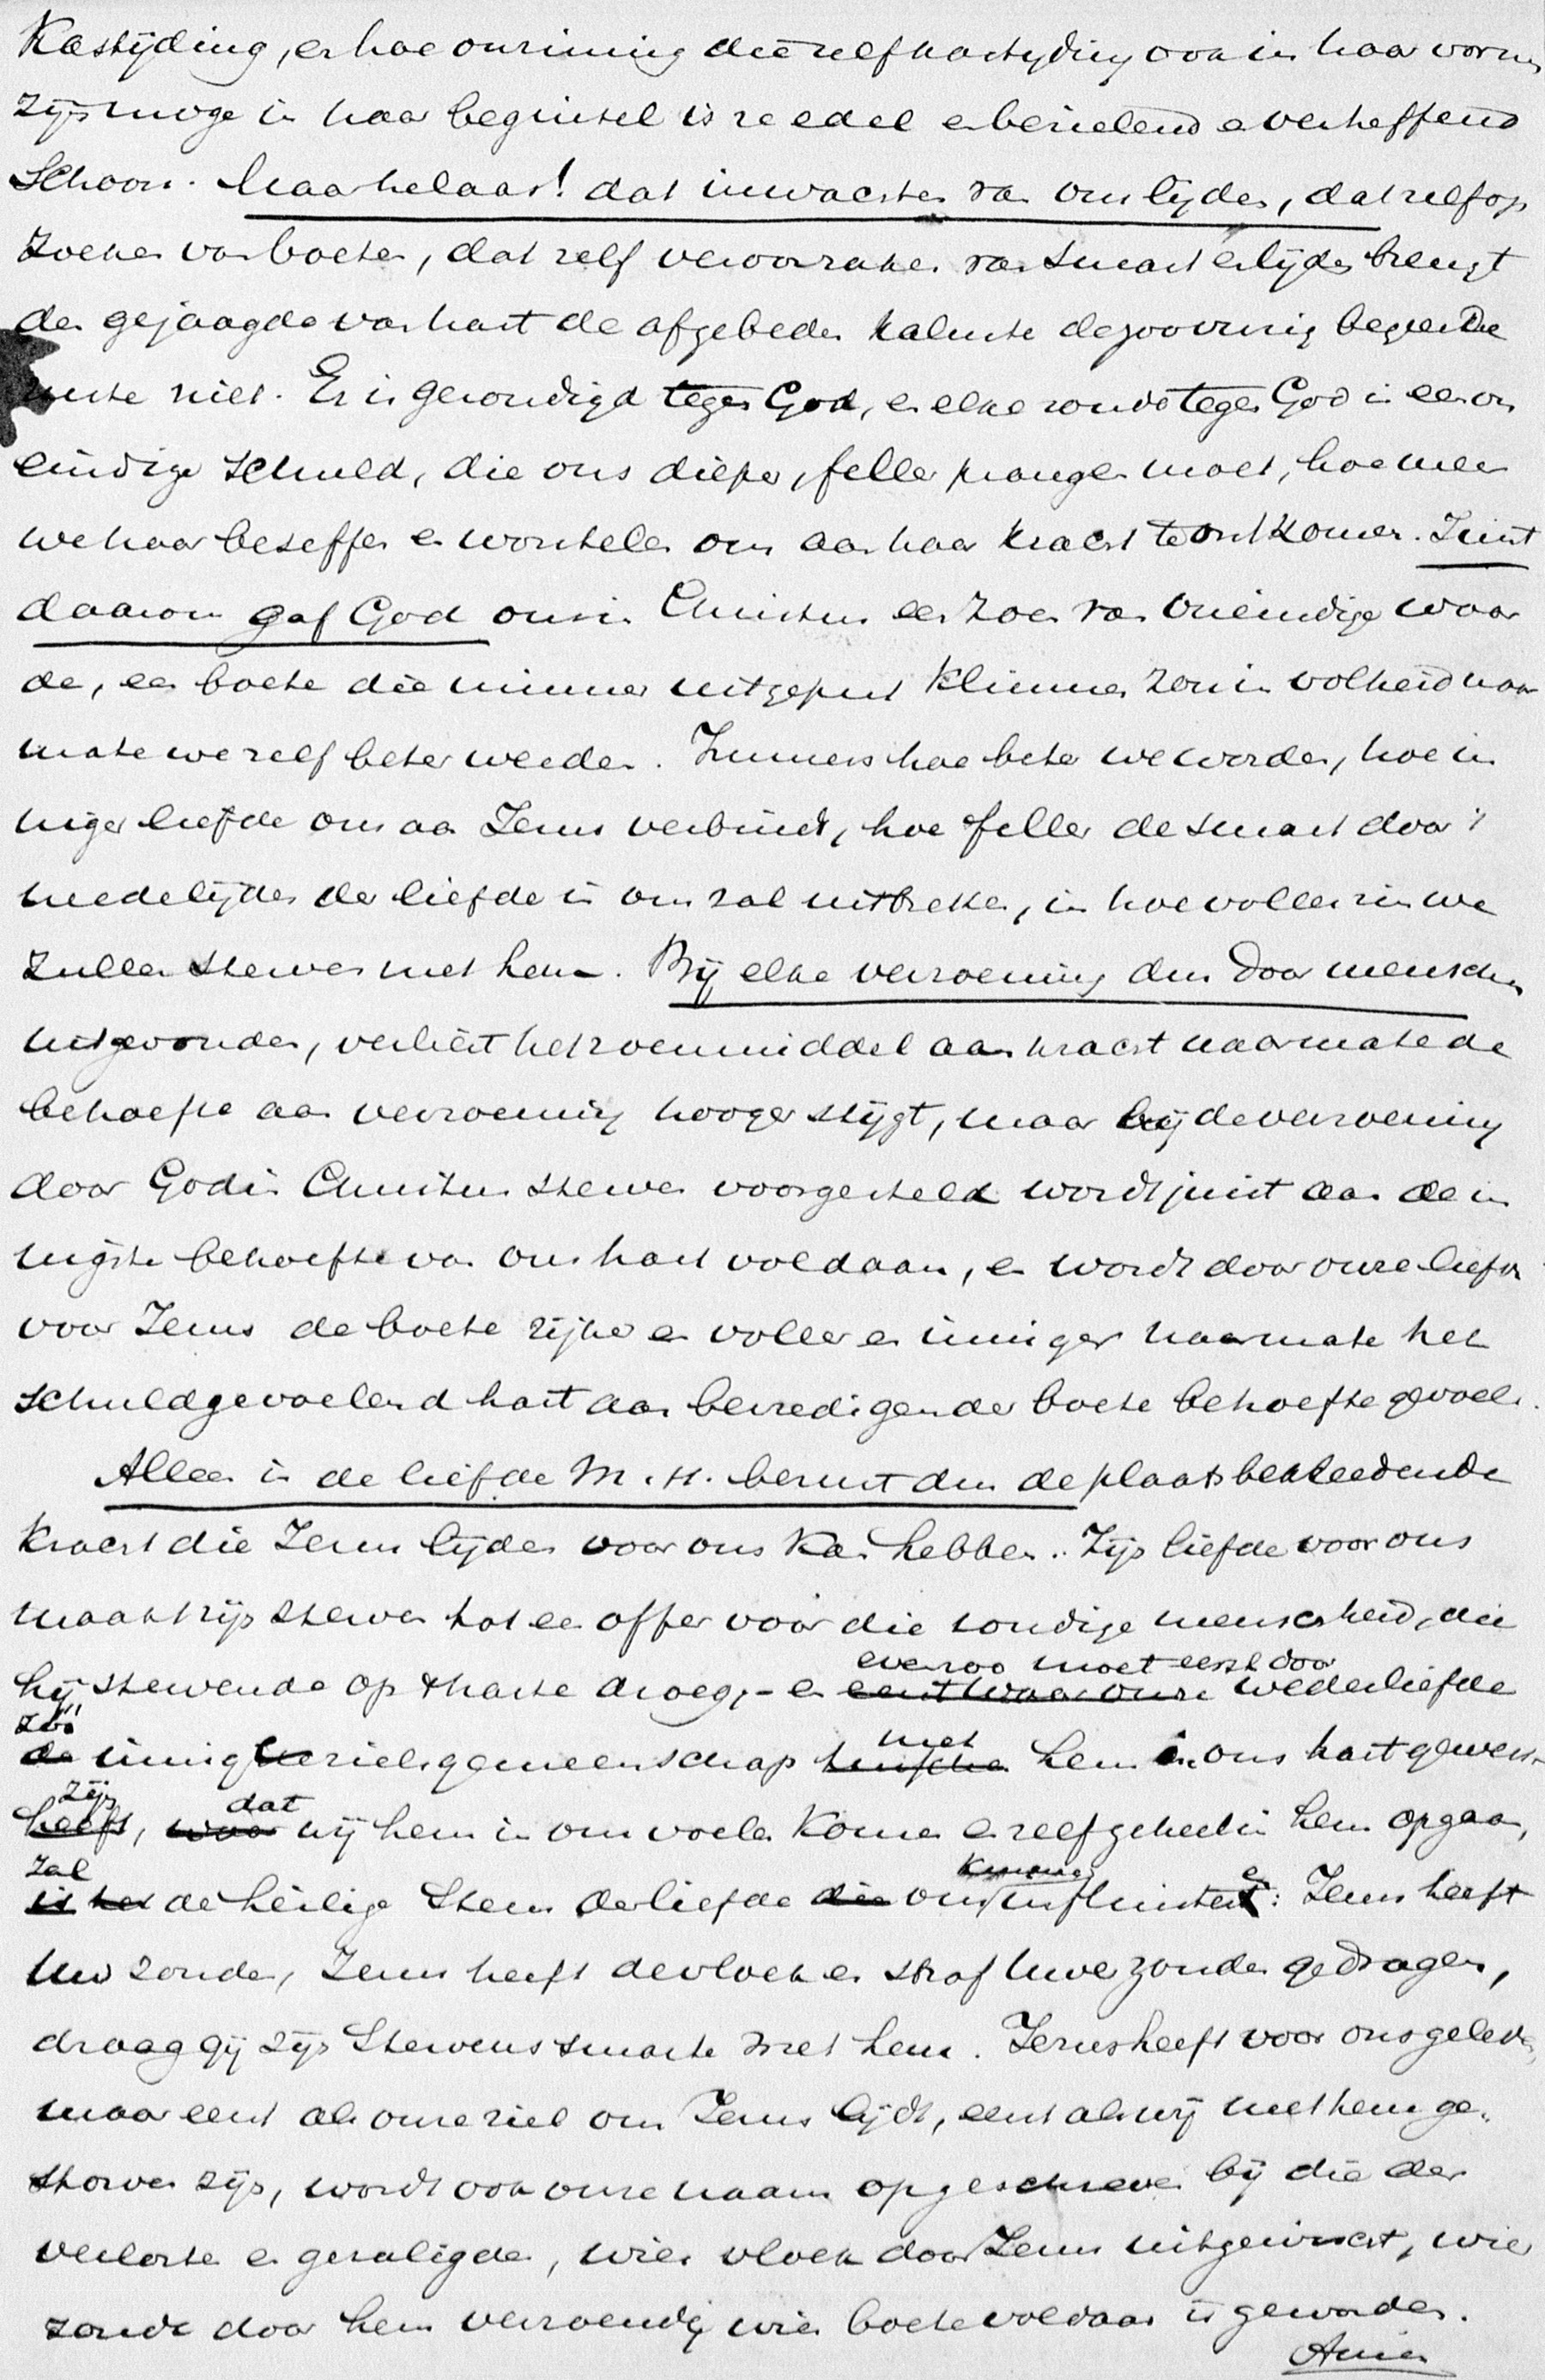 Kastijding, en hoe onzinnig die zelfkastijding ook in haar vormen
zijn moge in haar beginsel is ze edel en bezielend en verheffend
schoon. Maar helaas! dat inwachten van ons lijden, dat zelf op
zoeken van boeten, dat zelf veroorzaken van smart en lijden brengt
den gejaagde van hart de afgebeden kalmte de zoo vurig begeerde
ruste niet. Er is gezondigd tegen God, en elke zonde tegen God is een on
eindige schuld, die ons dieper, feller prangen moet, hoe meer
we haar beseffen en worstelen om aan haar kracht te ontkomen. Juist
daarom gaf God ons in Christus een zoen van oneindige waar
de, een boete die nimmer uitgeput klimmen zou in volheid naar
mate we zelf beter werden. Immers hoe beter we worden, hoe in
niger liefde ons aan Jezus verbindt, hoe feller de smart door 't
medelijden der liefde in ons zal uitbreken, in hoe voller zin we
zullen sterven met hem. Bij elke verzoening dus door menschen
uitgevonden, verliest het zoenmiddel aan kracht naarmate de
behoefte aan verzoening hooger stijgt, maar bij de verzoening
door God in Christus sterven voorgesteld wordt juist aan de in
nigste behoefte van ons hart voldaan, en wordt door onze liefde
voor Jezus de boete rijker en voller en inniger naarmate het
schuldgevoelend hart aan bevredigender boete behoefte gevoelt.
Alleen in de liefde M. H. berust dus de plaatsbekleedende
kracht die Jezus lijden voor ons kan hebben. Zijn liefde voor ons
maakt zijn sterven tot een offer voor die zondige menschheid, die
hij stervende op 't harte droeg, - en evenzoo moet eerst door
eerst waar onze wederliefde
zóó de innig de zielsgemeenschap tusschen met hem in ons hart gewekt
heeft, zijn waar dat wij hem in ons voelen komen en zelf geheel in hem opgaan,
zal is het de heilige stem der liefde die ons kunnen influisteren: Jezus heeft
Uw zonden, Jezus heeft de vloek en straf Uwer zonden gedragen,
draag gij zijn stervenssmarte met hem. Jezus heeft voor ons geleden,
maar eerst als onze ziel om Jezus lijdt, eerst als wij met hem ge-
storven zijn, wordt ook onze naam opgeschreven bij die der
verlosten en gezaligden, wier vloek door Jezus uitgewischt, wier
zonde door hem verzoend, wier boete voldaan is geworden.
Amen